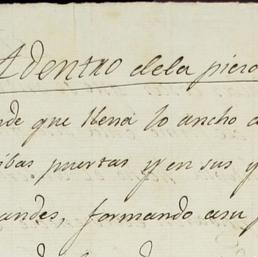 Adentro dela pieza
nde que llena lo ancho d
ibas puertas y en sus y
andes, formando asu p